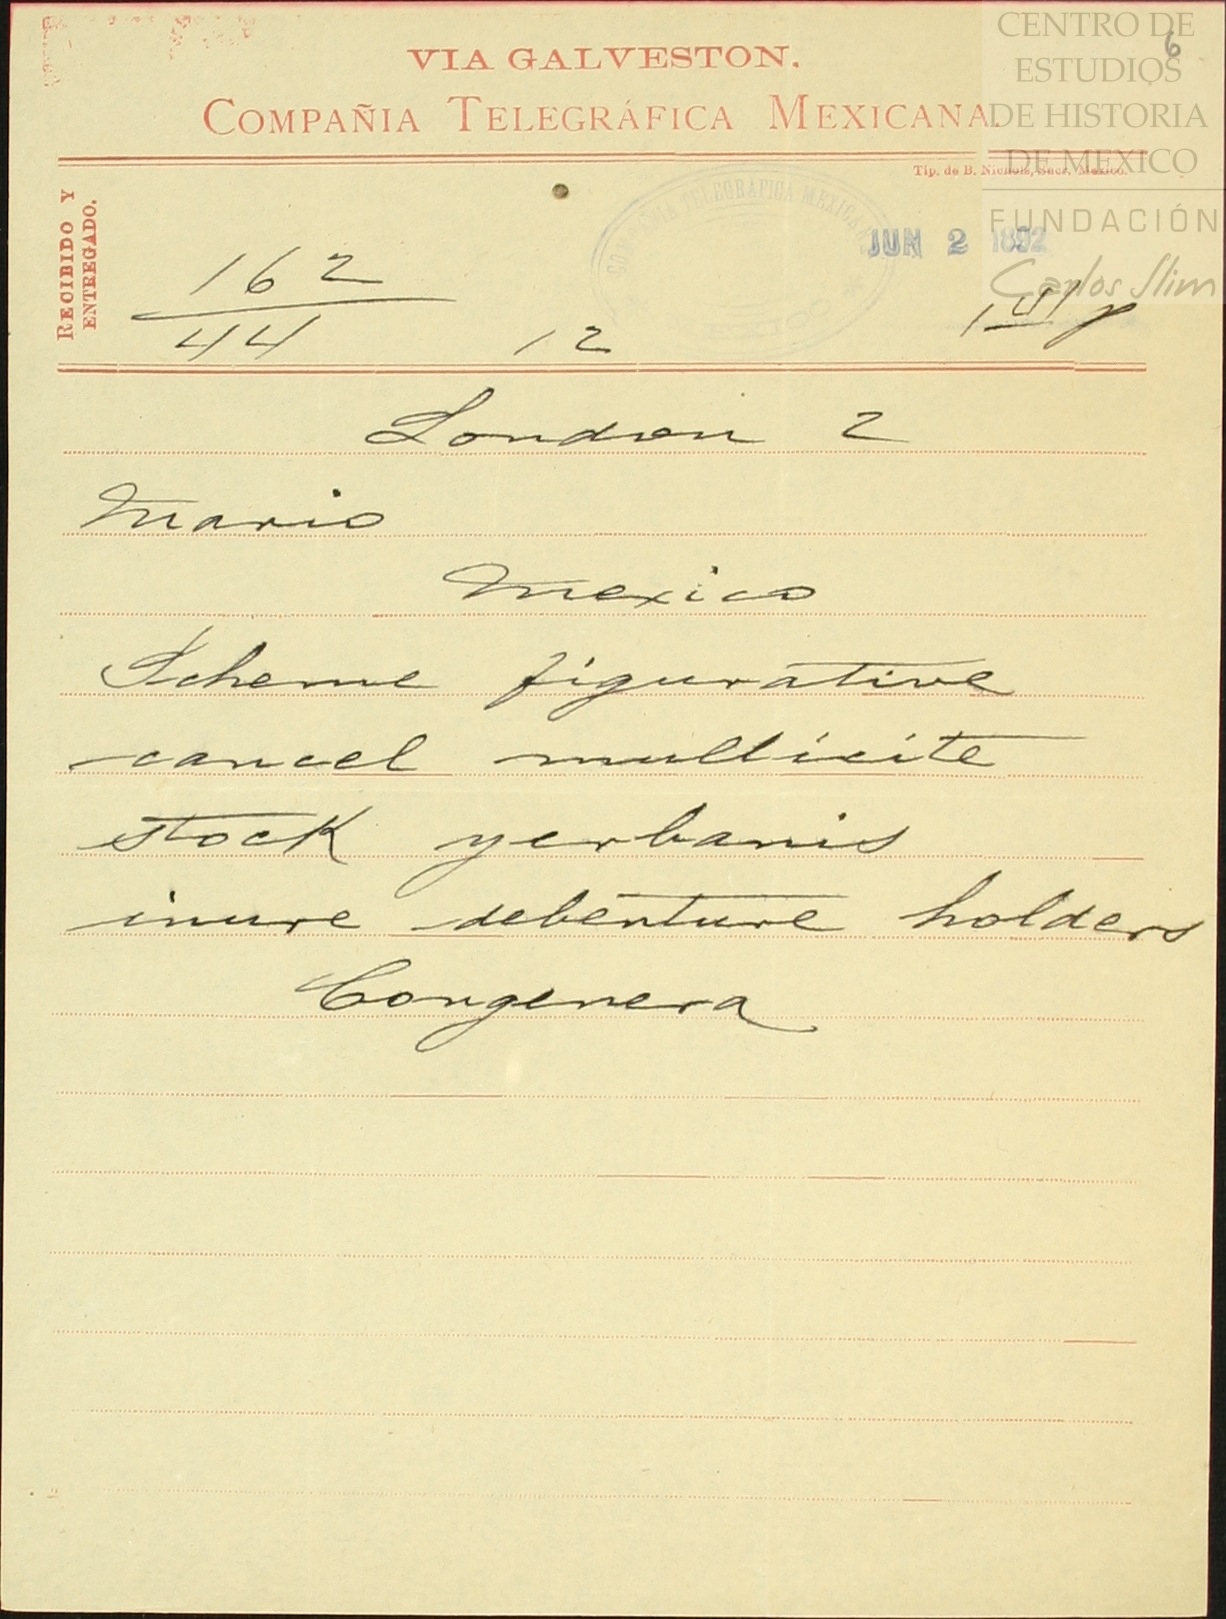 CENTRO DE
ESTUDIOS
DE HISTORIA
DE MEXICO
FUNDACIÓN
Carlos Slim
6
VIA GALVESTON.
COMPAÑIA TELEGRÁFICA MEXICANA.
Tip. de B. Nichols, Sucr. Mexico.
RECIBIDO Y
ENTREGADO.
COMPAÑIA TELEGRAFICA MEXICANA
MEXICO
JUN 2 1892
162
44 12
London 2
Mario
Mexico
Scheme figurative
cancel mullicite
stock yerbanis
inure debenture holders
Congenera